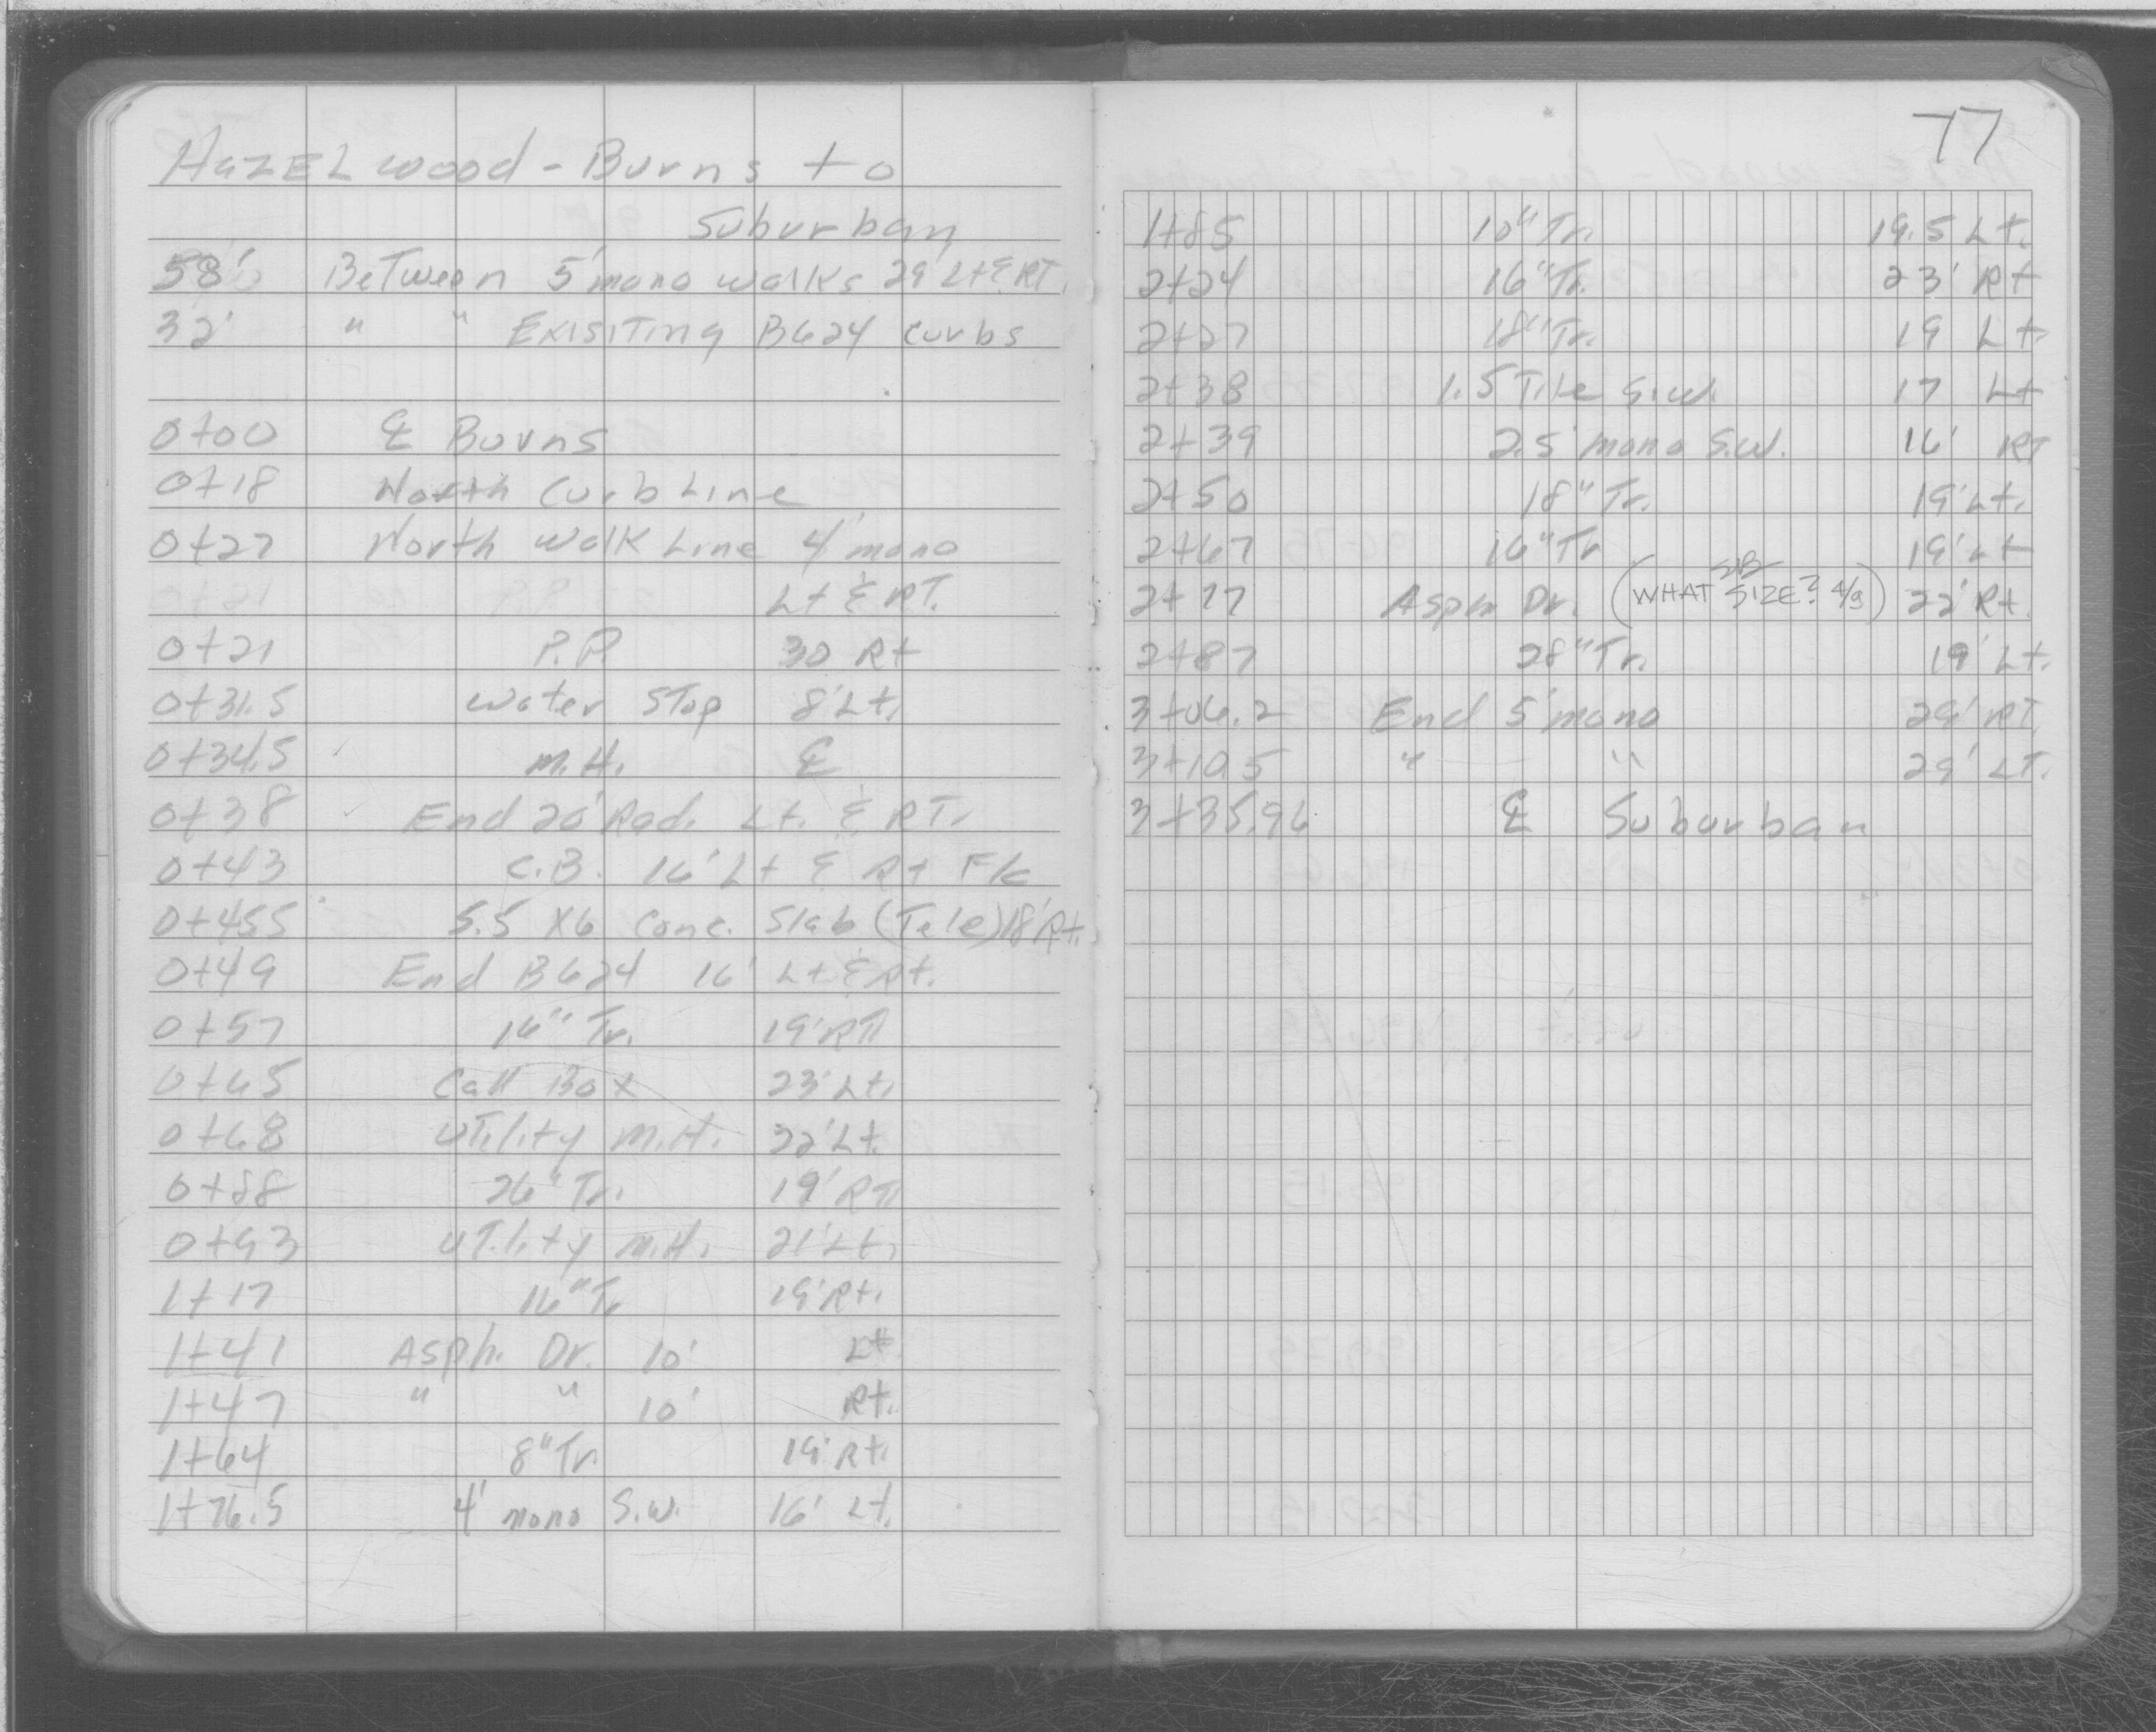 HAZELwood - Burns to
Suburban
58' BeTween 5' mono walks 29' Lt & RT.
32' " " EXISITING B624 curbs
0+00 ℄ Burns
0+18 North Curb Line
0+27 North Walk Line 4' mono
0+21 P.P. Lt & RT.
0+21 P.P. 30 Rt
0+31.5 Water STop 8' Lt.
0+34.5 M.H. ℄
0+38 End 20' Rad. Lt. & RT.
0+43 C.B. 16' Lt & Rt F/c
0+455 5.5 X6 Conc. Slab (Tele) 18' Rt.
0+49 End B624 16' Lt & Rt.
0+57 16" Tr. 19' RT.
0+65 Call Box 23' Lt.
0+68 UTility M.H. 22' Lt.
0+88 26" Tr. 19' RT.
0+93 UTility M.H. 21' Lt.
1+17 16" Tr 19' Rt.
1+41 Asph. Dr. 10' Lt
1+47 " " 10' Rt.
1+64 8" Tr. 19' Rt.
1+76.5 4' mono S.W. 16' Lt.
77
1+85 10" Tr. 19.5 Lt.
2+24 16" Tr. 23' Rt
2+27 18" Tr. 19 Lt.
2+38 1.5 Tile S.W. 17 Lt
2+39 2.5' mono S.W. 16' RT
2+50 18" Tr. 19' Lt.
2+67 16" Tr 19' Lt
2+77 Asph Dr. (WHAT SIZE? 4/9) 22' Rt.
2+87 28" Tr. 19' Lt.
3+06.2 End 5' mono 29' RT.
3+10.5 " " 29' LT.
3+35.96 ℄ Suburban